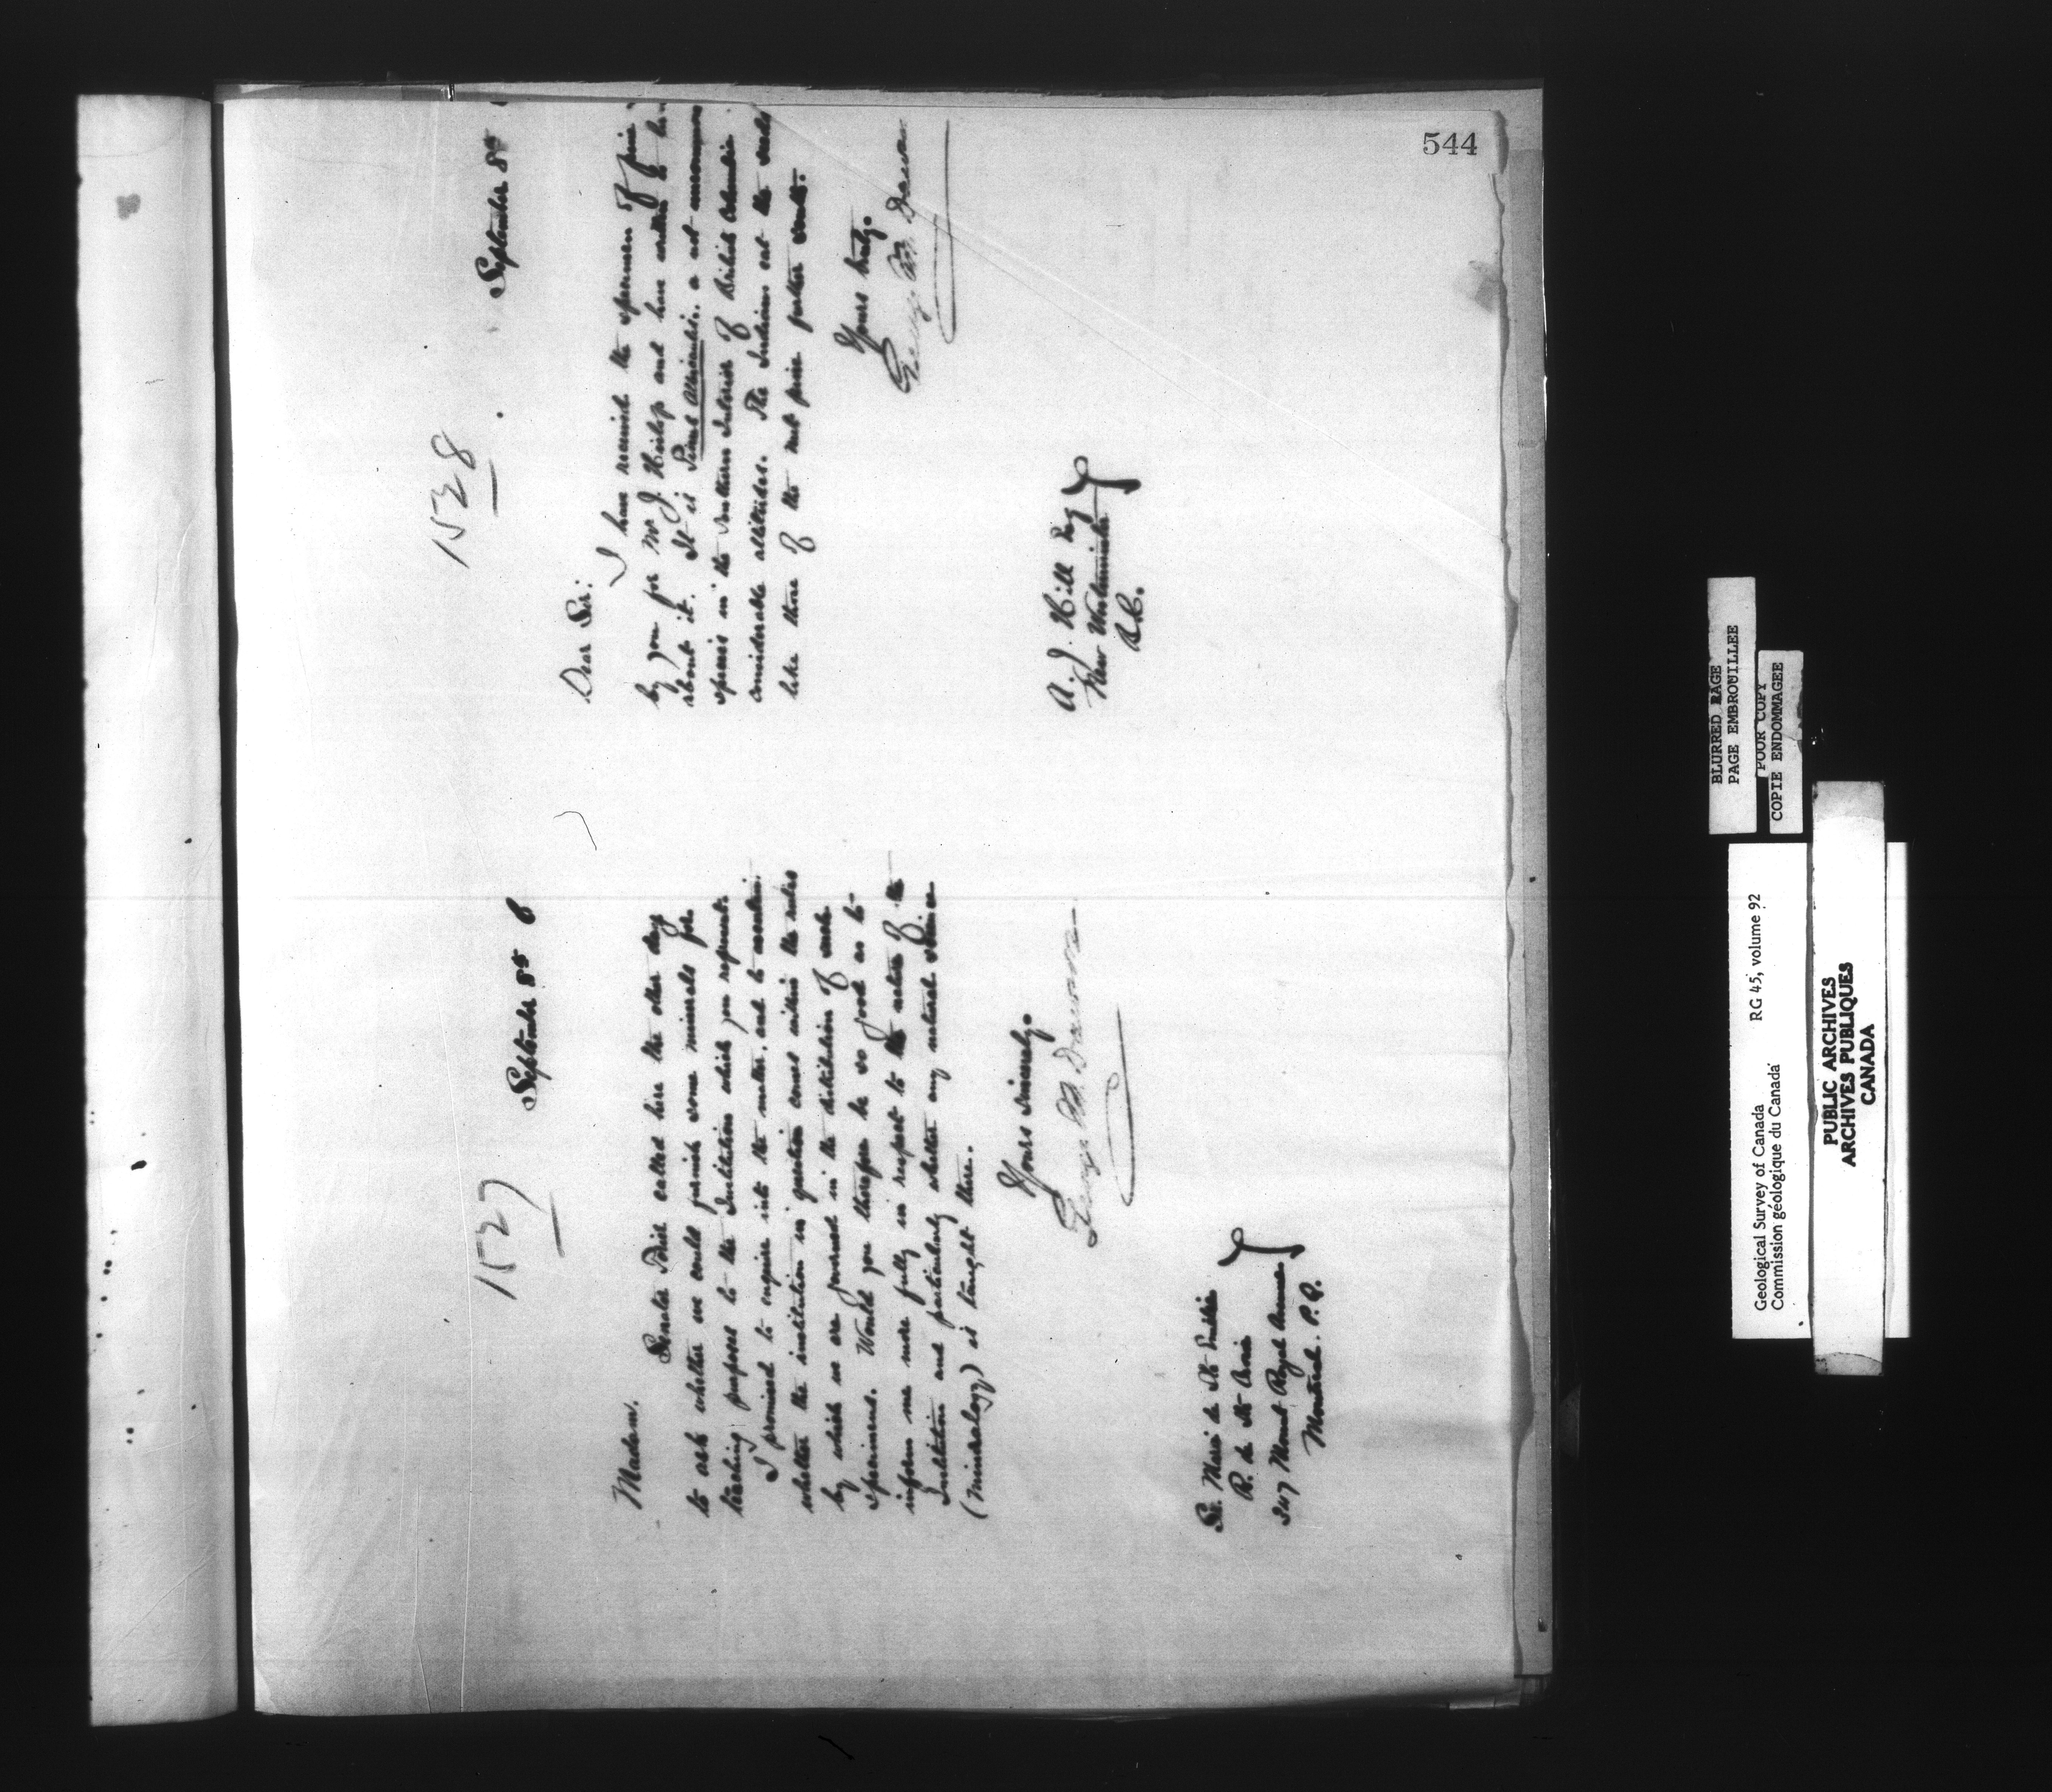 544
1527
September 8th 6
Madam.
Senator Poirier called here the other day
to ask whether we could furnish some minerals for
teaching purposes to the Institution which you represent.
I promised to enquire into the matter, and to ascertain
whether the institution in question comes within the rules
by which we are governed in the distribution of such
specimens. Would you therefore be so good as to
inform me more fully in respect to the nature of the
Institution and particularly whether any natural science
(mineralogy) is taught there.
Yours sincerely.
George M. Dawson
Sr. Marie de St
R. de St
247 Mount Royal Avenue
Montreal. P.Q.
1528
September 8th
Dear Sir:
I have received the specimen of pine
by you for Mr J. and have written to him
about it. It is Pinus Albicaulis. a not uncommon
species in the Southern Interior of British Columbia
considerable altitudes. The Indians eat the seeds
like those of the nut pine further south.
Yours truly.
George M. Dawson
A. J. Hill Esq
New Westminster
B.C.
BLURRED PAGE
PAGE EMBROUILLEE
POOR COPY
COPIE ENDOMMAGEE
Geological Survey of Canada RG 45, volume 92
Commission géologique du Canada
PUBLIC ARCHIVES
ARCHIVES PUBLIQUES
CANADA